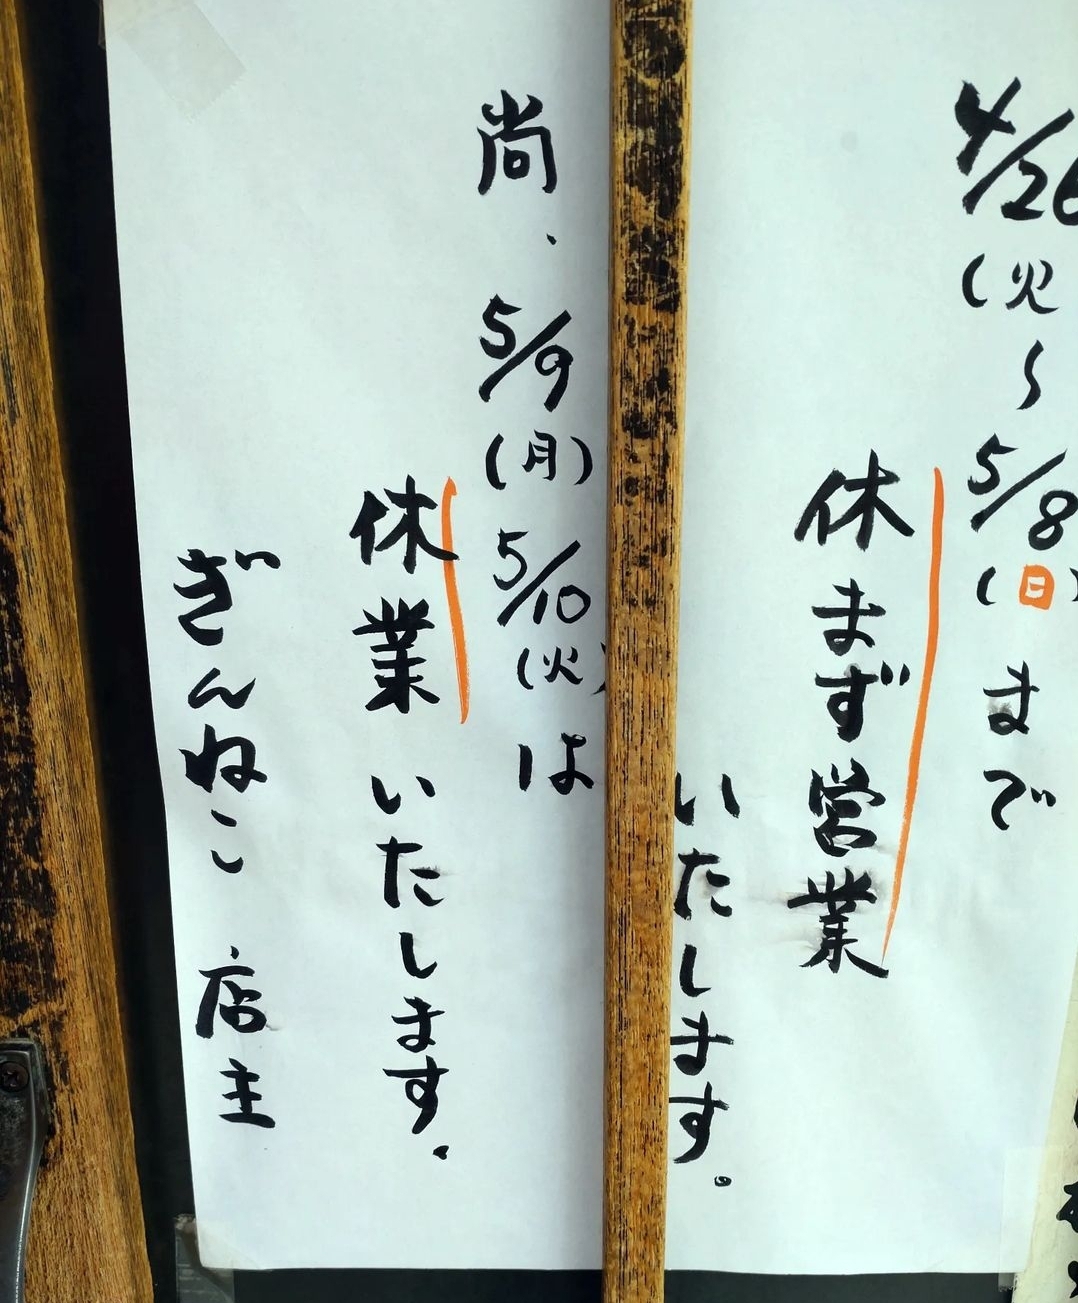 4/26(火〜5/8(日)まで
休まず営業
いたします。
尚、5/9(月)5/10(火)は
休業いたします.
ぎんねこ 店主